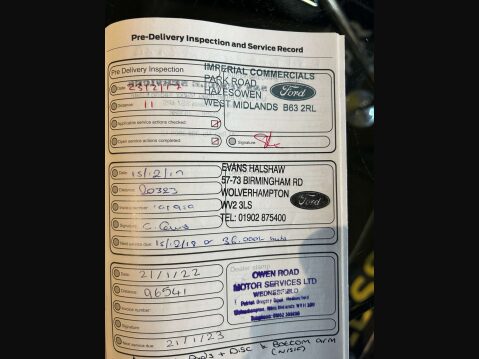 Pre-Delivery Inspection and Service Record
Pre Delivery Inspection
IMPERIAL COMMERCIALS
PARK ROAD
HALESOWEN
WEST MIDLANDS B63 2RL
Ford
Date:
Distance: 11
Applicable service actions checked:
Open service actions completed:
Signature:
Date: 15/12/17
Distance: 20323
Invoice number:
Signature:
Next service due: 15/12/18 or 36,000
EVANS HALSHAW
57-73 BIRMINGHAM RD
WOLVERHAMPTON
WV2 3LS
TEL: 01902 875400
Ford
Date: 21/1/22
Distance: 96541
Invoice number:
Signature:
Next service due: 21/1/23
Dealer stamp
OWEN ROAD
MOTOR SERVICES LTD
WEDNESFIELD
Pads + Disc & Bottom arm
(N/S/F)